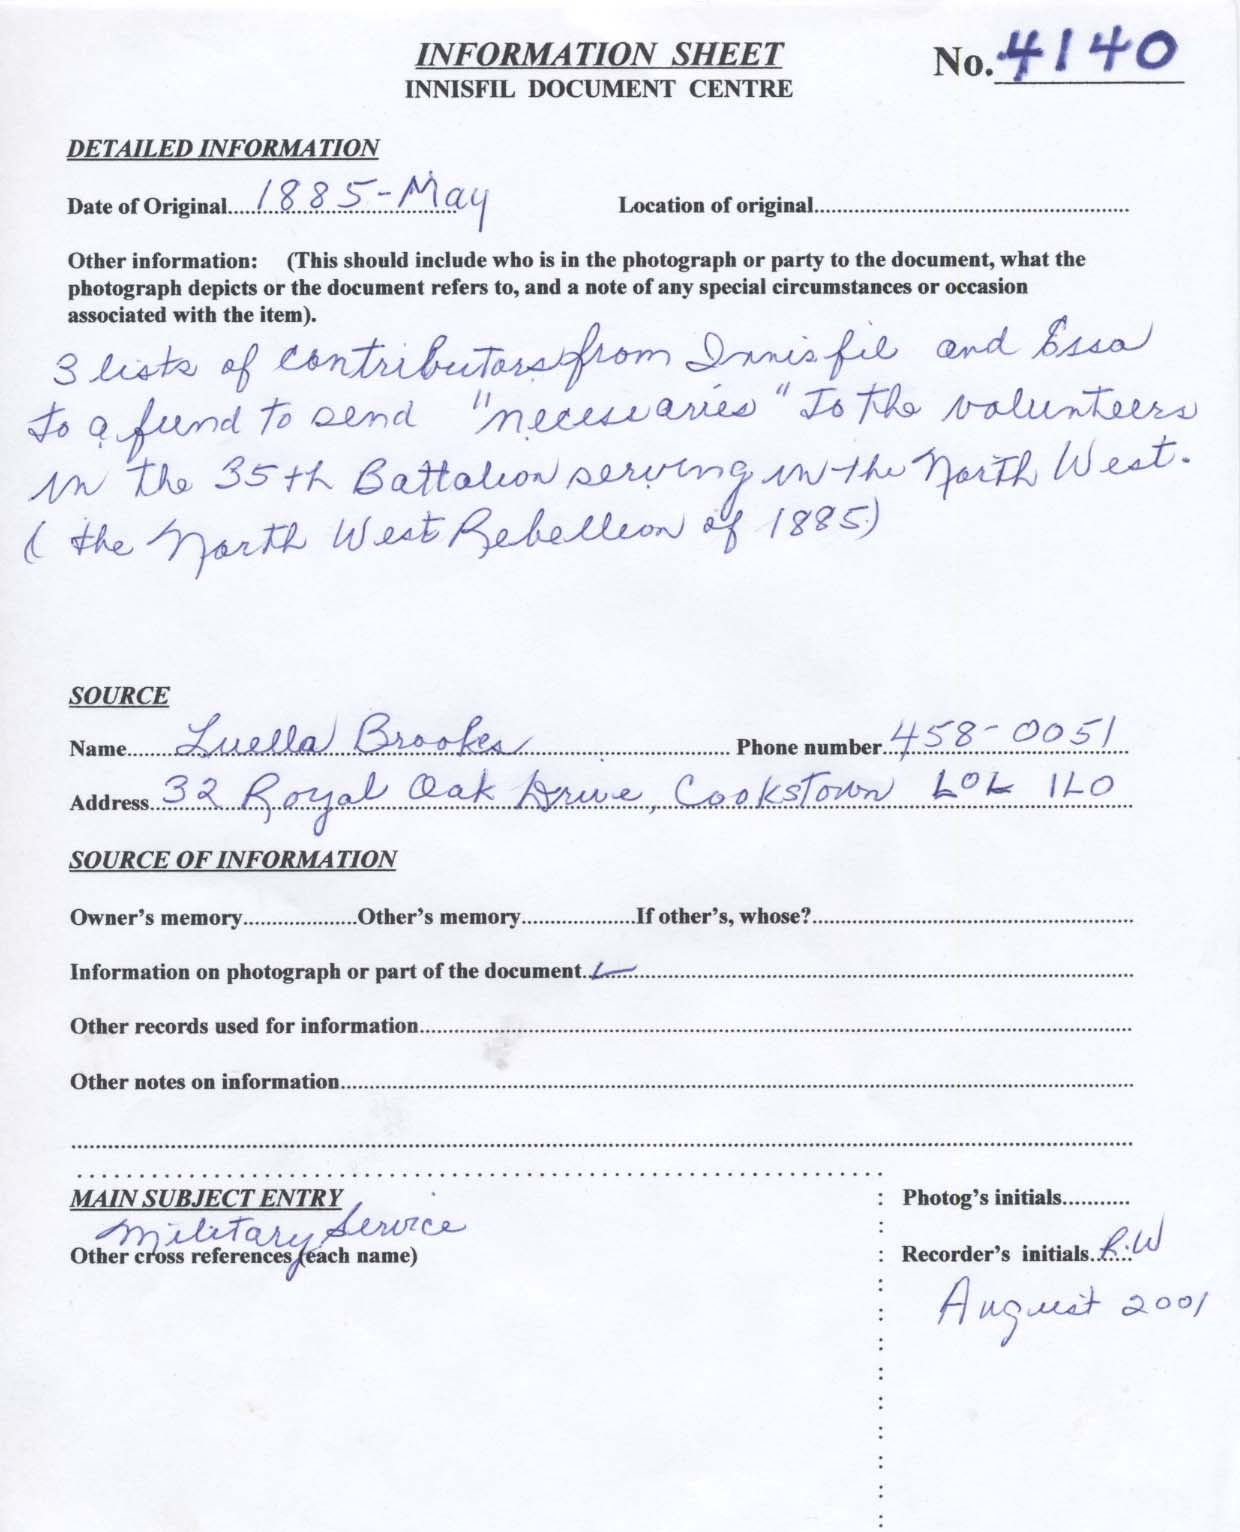 INFORMATION SHEET
No. 4140
INNISFIL DOCUMENT CENTRE
DETAILED INFORMATION
Date of Original....1885-May
Location of original..........
Other information: (This should include who is in the photograph or party to the document, what the
photograph depicts or the document refers to, and a note of any special circumstances or occasion
associated with the item).
3 lists of contributors from Innisfil and Essa
to a fund to send "necessaries" to the volunteers
in the 35th Battalion serving in the North West.
(the North West Rebellion of 1885)
SOURCE
Name....Luella Brookes.......... Phone number..458-0051
Address..32 Royal Oak Drive, Cookstown L0L 1L0
SOURCE OF INFORMATION
Owner's memory..........Other's memory..........If other's, whose?..........
Information on photograph or part of the document..✓..........
Other records used for information..........
Other notes on information..........
MAIN SUBJECT ENTRY
: Photog's initials..........
Military Service
Other cross references (each name)
: Recorder's initials..R.W
August 2001